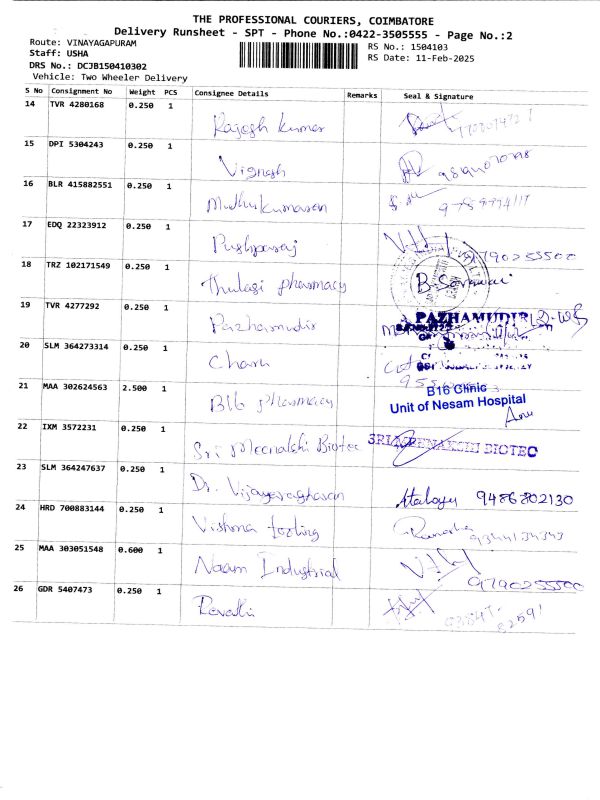 THE PROFESSIONAL COURIERS, COIMBATORE
Delivery Runsheet - SPT - Phone No.:0422-3505555 - Page No.:2
Route: VINAYAGAPURAM
RS No.: 1504103
Staff: USHA
RS Date: 11-Feb-2025
DRS No.: DCJB150410302
Vehicle: Two Wheeler Delivery
S No Consignment No Weight PCS Consignee Details Remarks Seal & Signature
14 TVR 4280168 0.250 1 Rajesh Kumar
15 DPI 5304243 0.250 1 Vignesh
16 BLR 415882551 0.250 1 Muthukumaran
17 EDQ 22323912 0.250 1 Pushparaj 9790255500
18 TRZ 102171549 0.250 1 Thulasi pharmacy
19 TVR 4277292 0.250 1 Pazhamudir PAZHAMUDIR
20 SLM 364273314 0.250 1 Charu
21 MAA 302624563 2.500 1 B16 pharmacy B16 Clinic
Unit of Nesam Hospital
Anu
22 IXM 3572231 0.250 1 Sri Meenakshi Biotec SRI MEENAKSHI BIOTEC
23 SLM 364247637 0.250 1 Dr. Vijayaraghavan 9486802130
24 HRD 700883144 0.250 1 Vishma 9344134343
25 MAA 303051548 0.600 1 Naam Industrial 9790255500
26 GDR 5407473 0.250 1 Revathi